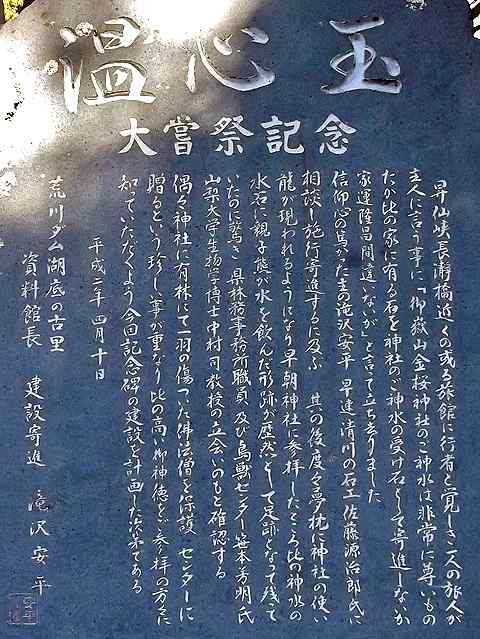 玉心温
大嘗祭記念
昇仙峡長瀞橋近くの或る旅館に行者と覚しき一人の旅人が
主人に言う事に「御嶽山金桜神社のご神水は非常に尊いもの
だが此の家に有る石を神社のご神水の受け石として寄進しないか
家運隆昌間違いないが」と言って立ち去りました
信仰心の篤かた主の滝沢安平 早速 清川の石工 佐藤源治郎氏に
相談し施行寄進するに及ぶ 其の後度々夢枕に神社の使い
龍が現われるようになり早朝神社に参拝したところ此の神水の
水石に親子熊が水を飲んだ形跡が歴然として足跡となって残って
いたのに驚き 県林務事務所職員 及び鳥獣センター 笠本芳明氏
山梨大学生物学博士中村司教授の立会いのもと確認する
偶々神社に有林にて一羽の傷ついた佛法僧を保護 センターに
贈るという珍しい事が重なり此の高い御神徳をご参拝の方々に
知っていただくよう今回記念碑の建設を計画した次第である
平成二年四月十日
荒川ダム湖底の古里
資料館長 建設寄進 滝沢安平